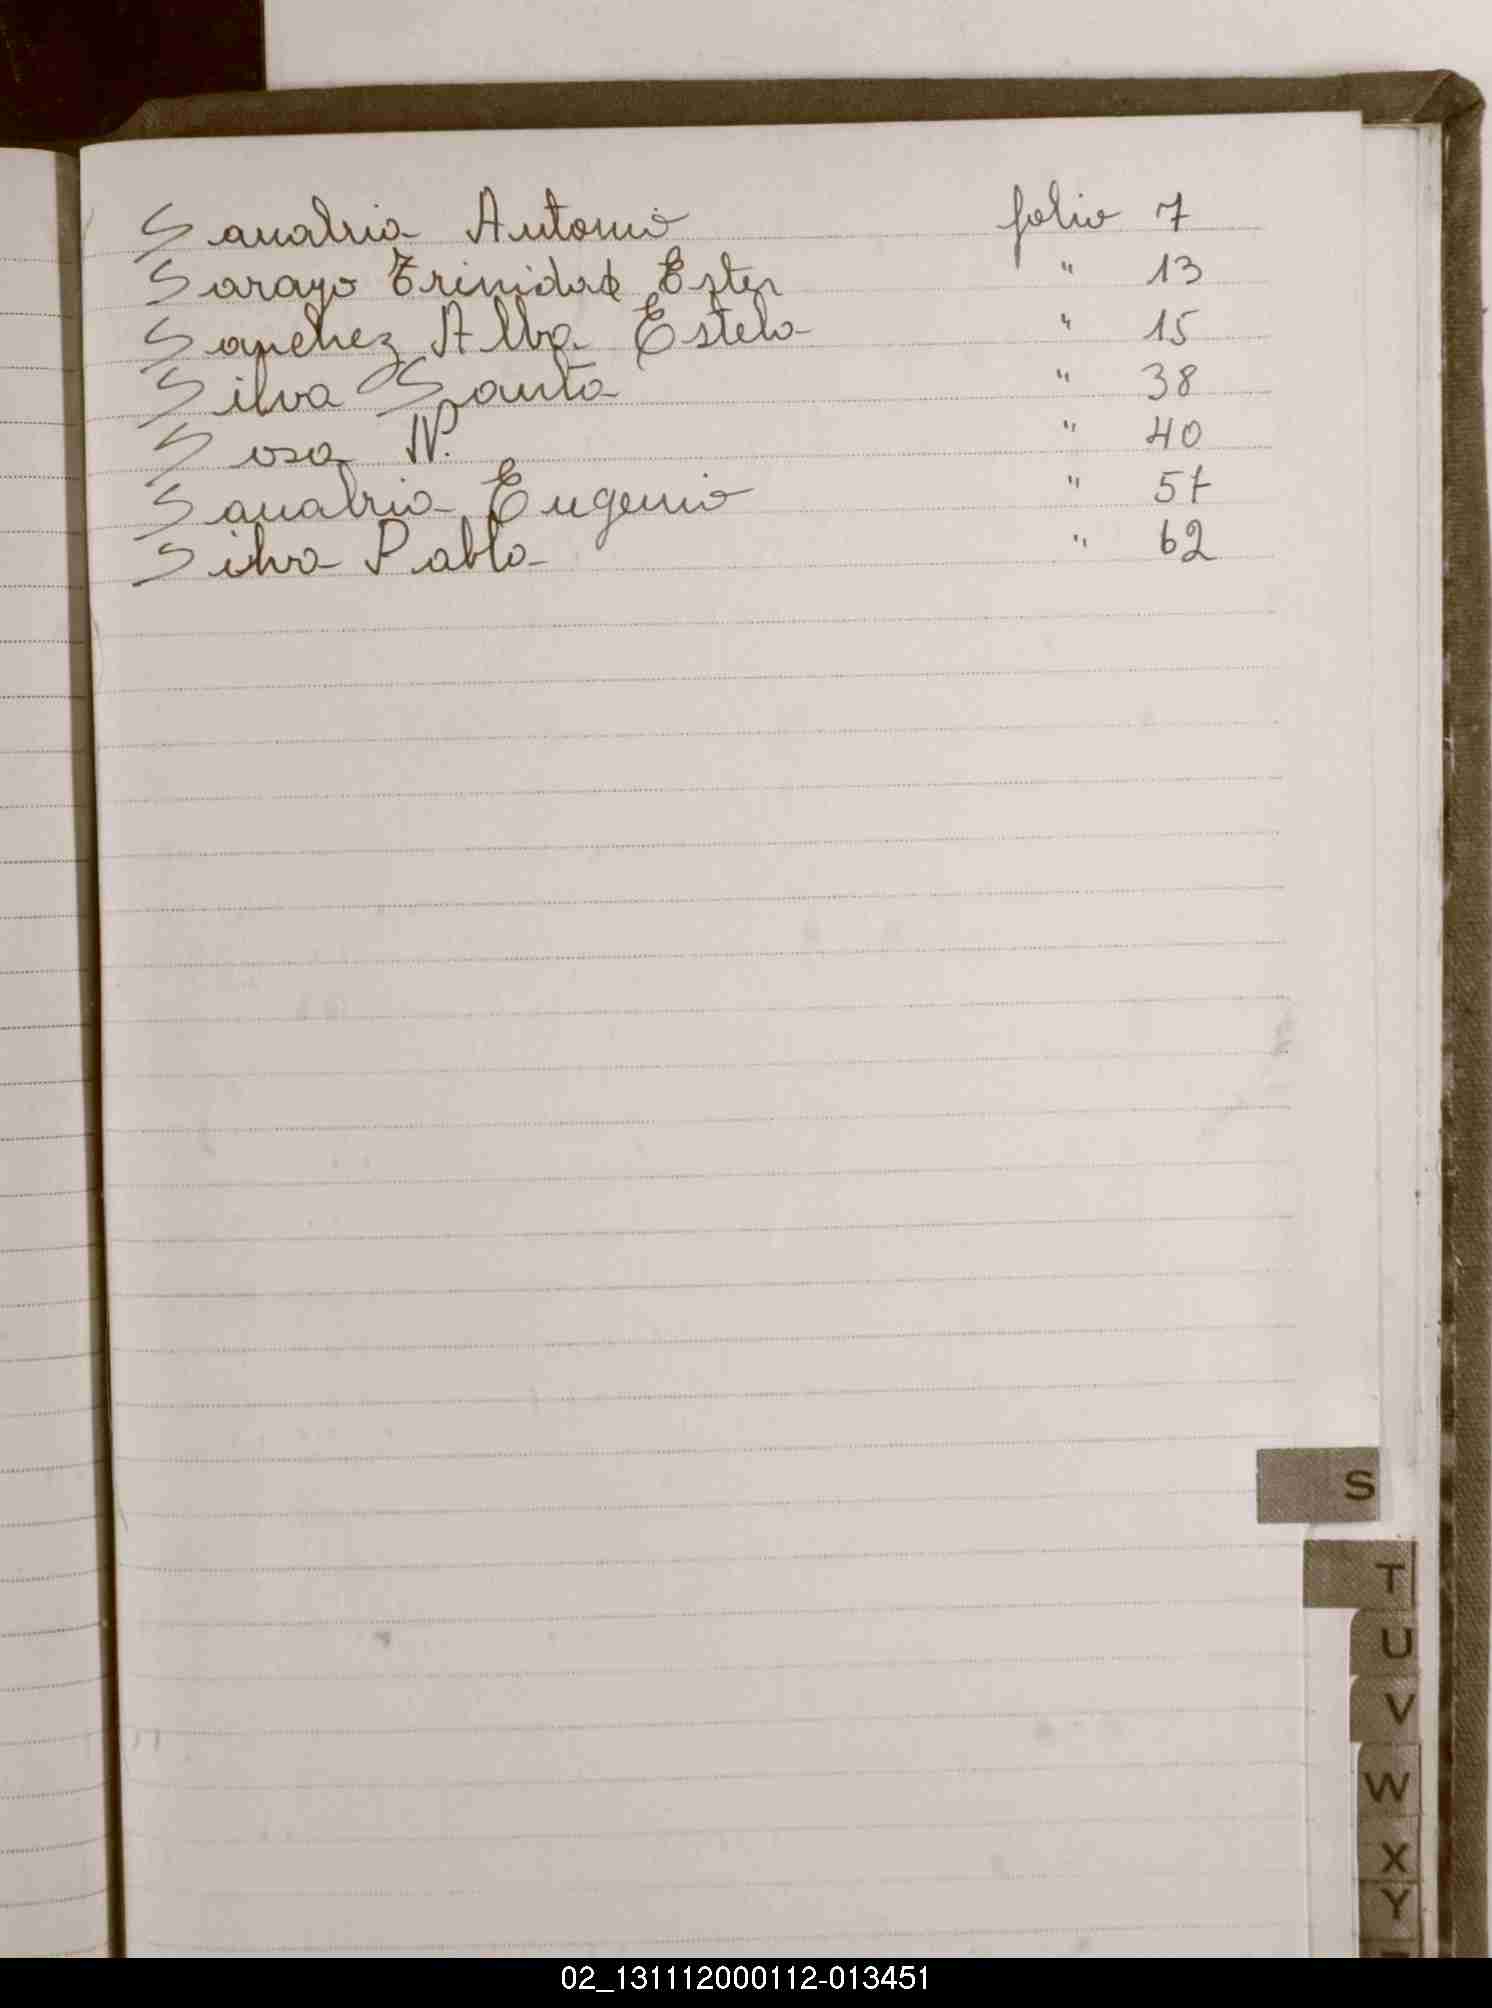 Sanabria Antonio folio 7
Sarayo Trinidad Ester " 13
Sanchez Alba Estela " 15
Silva Santa " 38
Sosa N. " 40
Sanabria Eugenio " 57
Silva Pablo " 62
S
T
U
V
W
X
Y
02_131112000112-013451